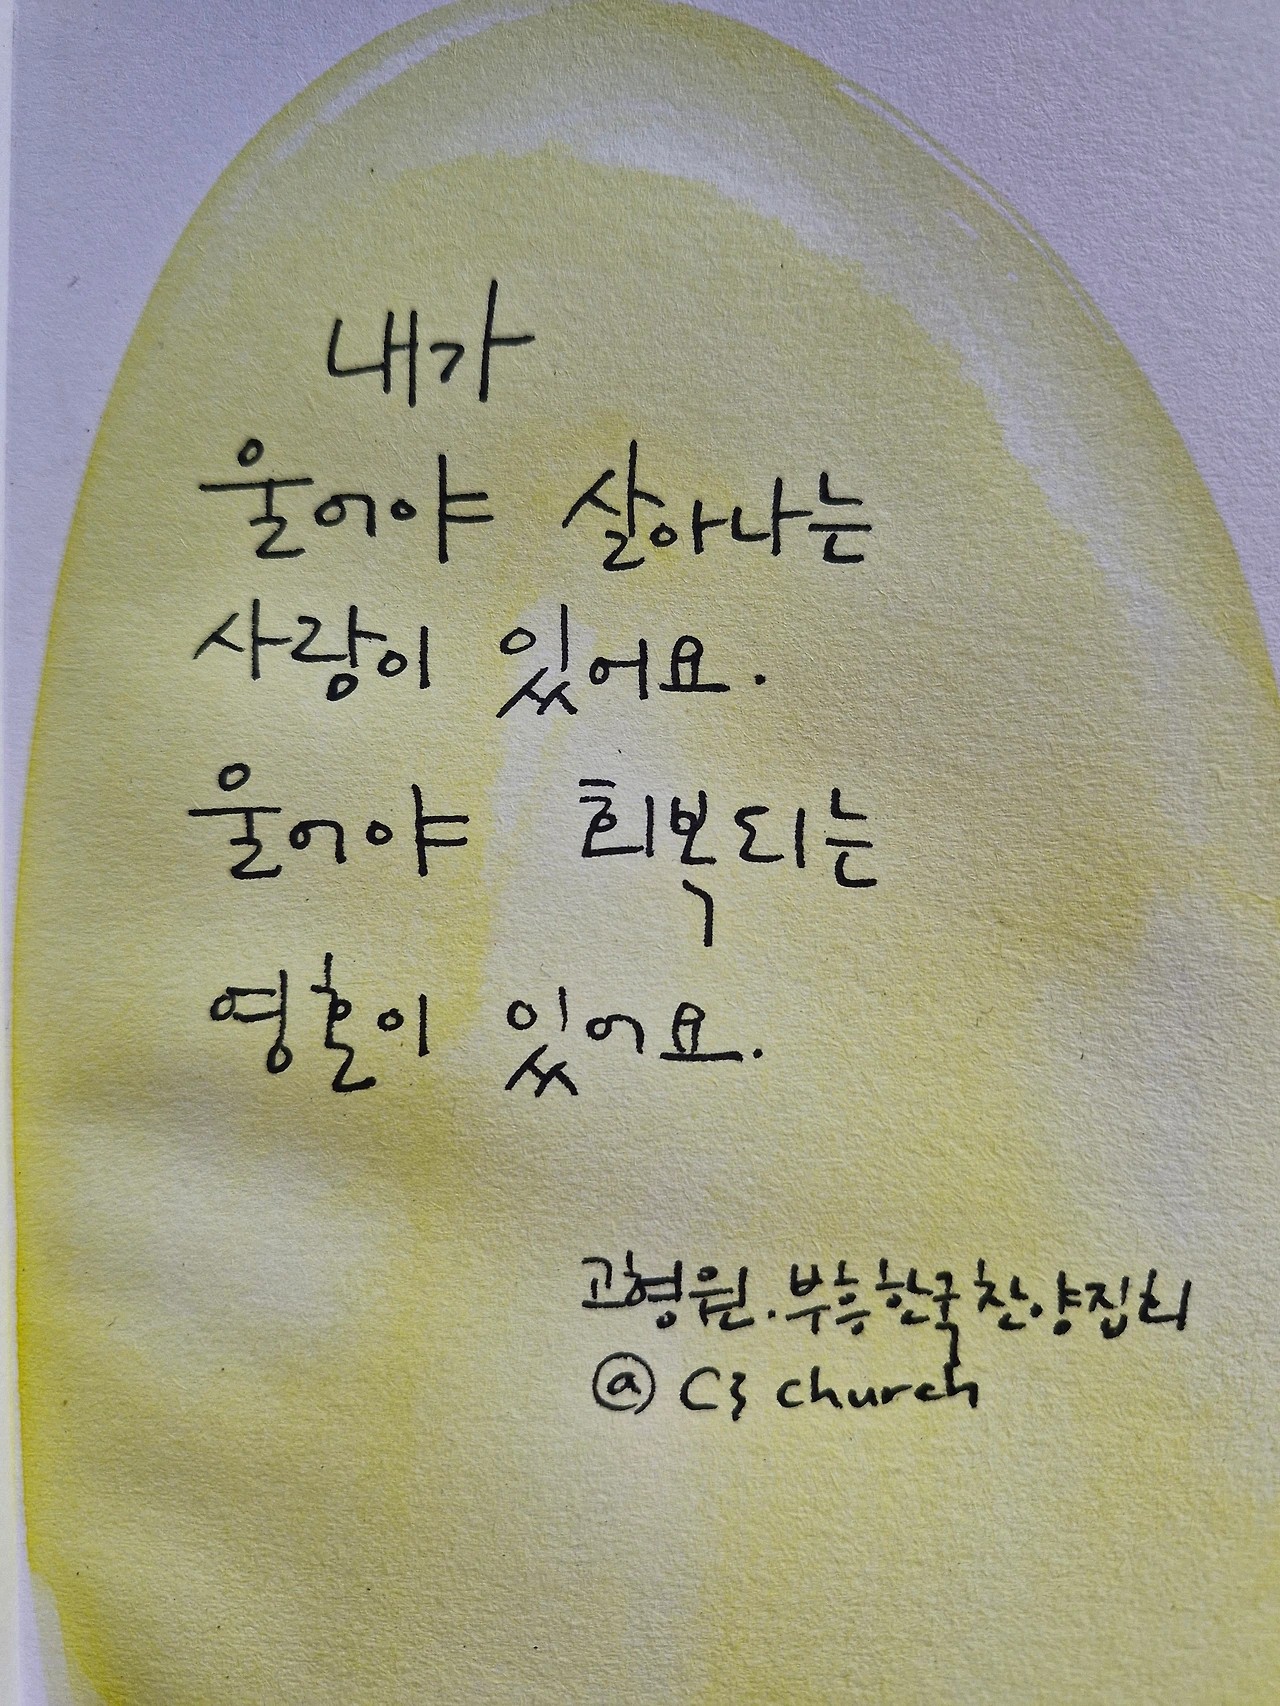 내가
울어야 살아나는
사랑이 있어요.
울어야 회복되는
영혼이 있어요.
고형원.부흥한국찬양집회
@ C3 church